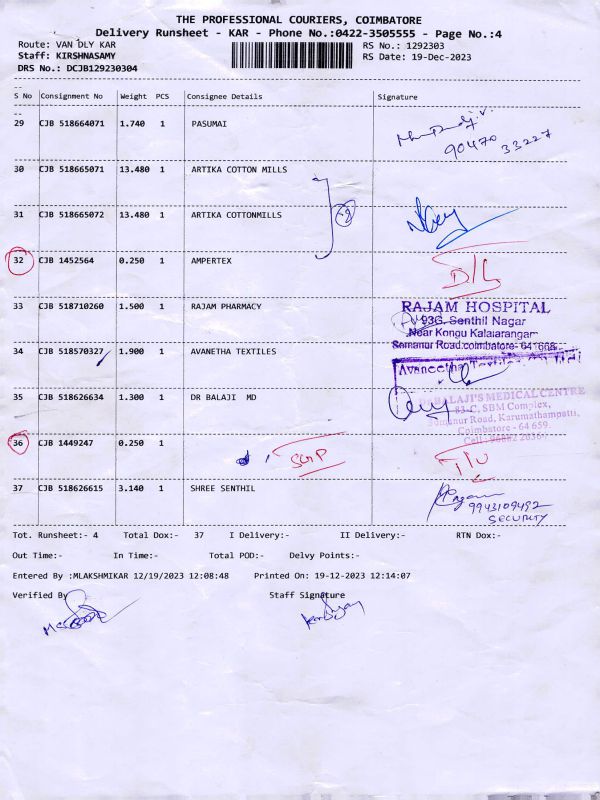 THE PROFESSIONAL COURIERS, COIMBATORE
Delivery Runsheet - KAR - Phone No.:0422-3505555 - Page No.:4
Route: VAN DLY KAR RS No.: 1292303
Staff: KIRSHNASAMY RS Date: 19-Dec-2023
DRS No.: DCJB129230304
S No Consignment No Weight PCS Consignee Details Signature
29 CJB 518664071 1.740 1 PASUMAI
90470 33227
30 CJB 518665071 13.480 1 ARTIKA COTTON MILLS
31 CJB 518665072 13.480 1 ARTIKA COTTONMILLS
32 CJB 1452564 0.250 1 AMPERTEX D/L
33 CJB 518710260 1.500 1 RAJAM PHARMACY RAJAM HOSPITAL
93G, Senthil Nagar
Near Kongu Kalaiarangam
Somanur Road.coimbatore- 641668
34 CJB 518570327 1.900 1 AVANETHA TEXTILES
Avaneetha
35 CJB 518626634 1.300 1 DR BALAJI MD BALAJI'S MEDICAL CENTRE
83-C, SBM Complex,
Somanur Road, Karumathampatti,
Coimbatore - 641 659.
36 CJB 1449247 0.250 1
37 CJB 518626615 3.140 1 SHREE SENTHIL
9943109492
SECURITY
Tot. Runsheet:- 4 Total Dox:- 37 I Delivery:- II Delivery:- RTN Dox:-
Out Time:- In Time:- Total POD:- Delvy Points:-
Entered By :MLAKSHMIKAR 12/19/2023 12:08:48 Printed On: 19-12-2023 12:14:07
Verified By Staff Signature